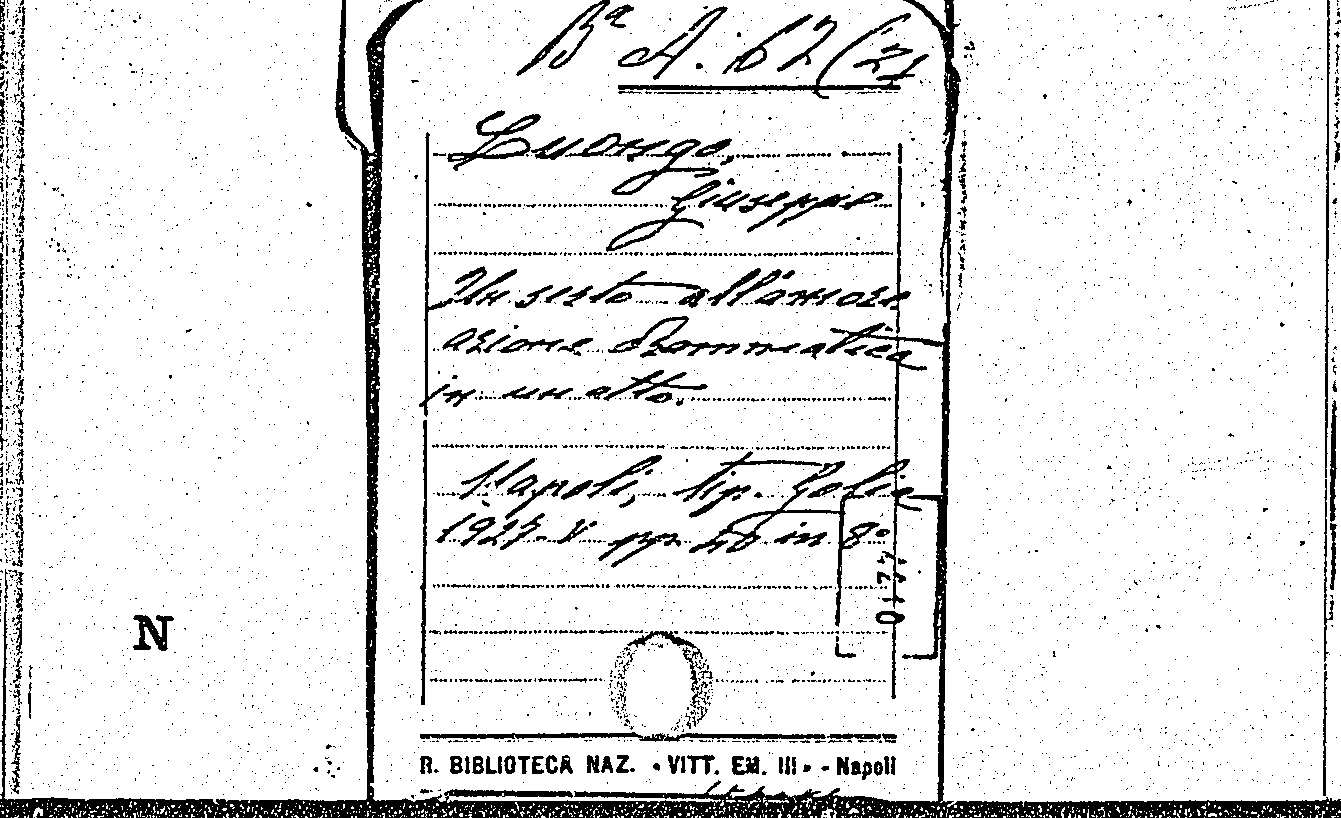 Bª A. 62 (21
Luongo,
Giuseppe
Un sesto all'amore
azione drammatica
in un atto.
Napoli, tip. Golia
1927-V pp. 26 in 8°
N
R. BIBLIOTECA NAZ. • VITT. EM. III • - Napoli